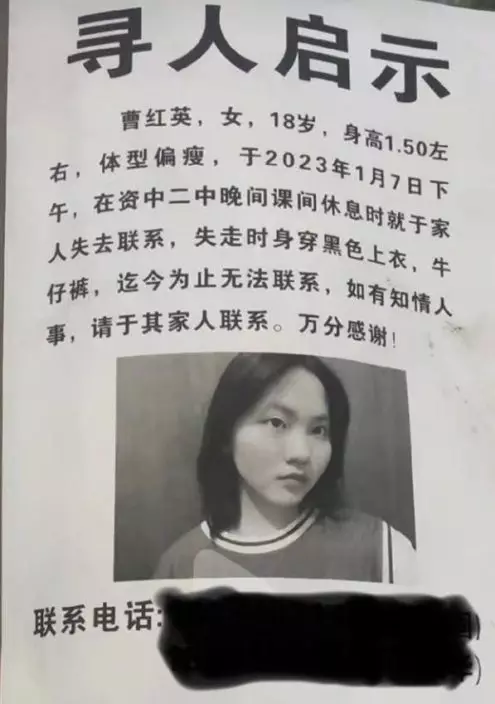 寻人启示
曹红英，女，18岁，身高1.50左
右，体型偏瘦，于2023年1月7日下
午，在资中二中晚间课间休息时就于家
人失去联系，失走时身穿黑色上衣，牛
仔裤，迄今为止无法联系，如有知情人
事，请于其家人联系。万分感谢！
联系电话: